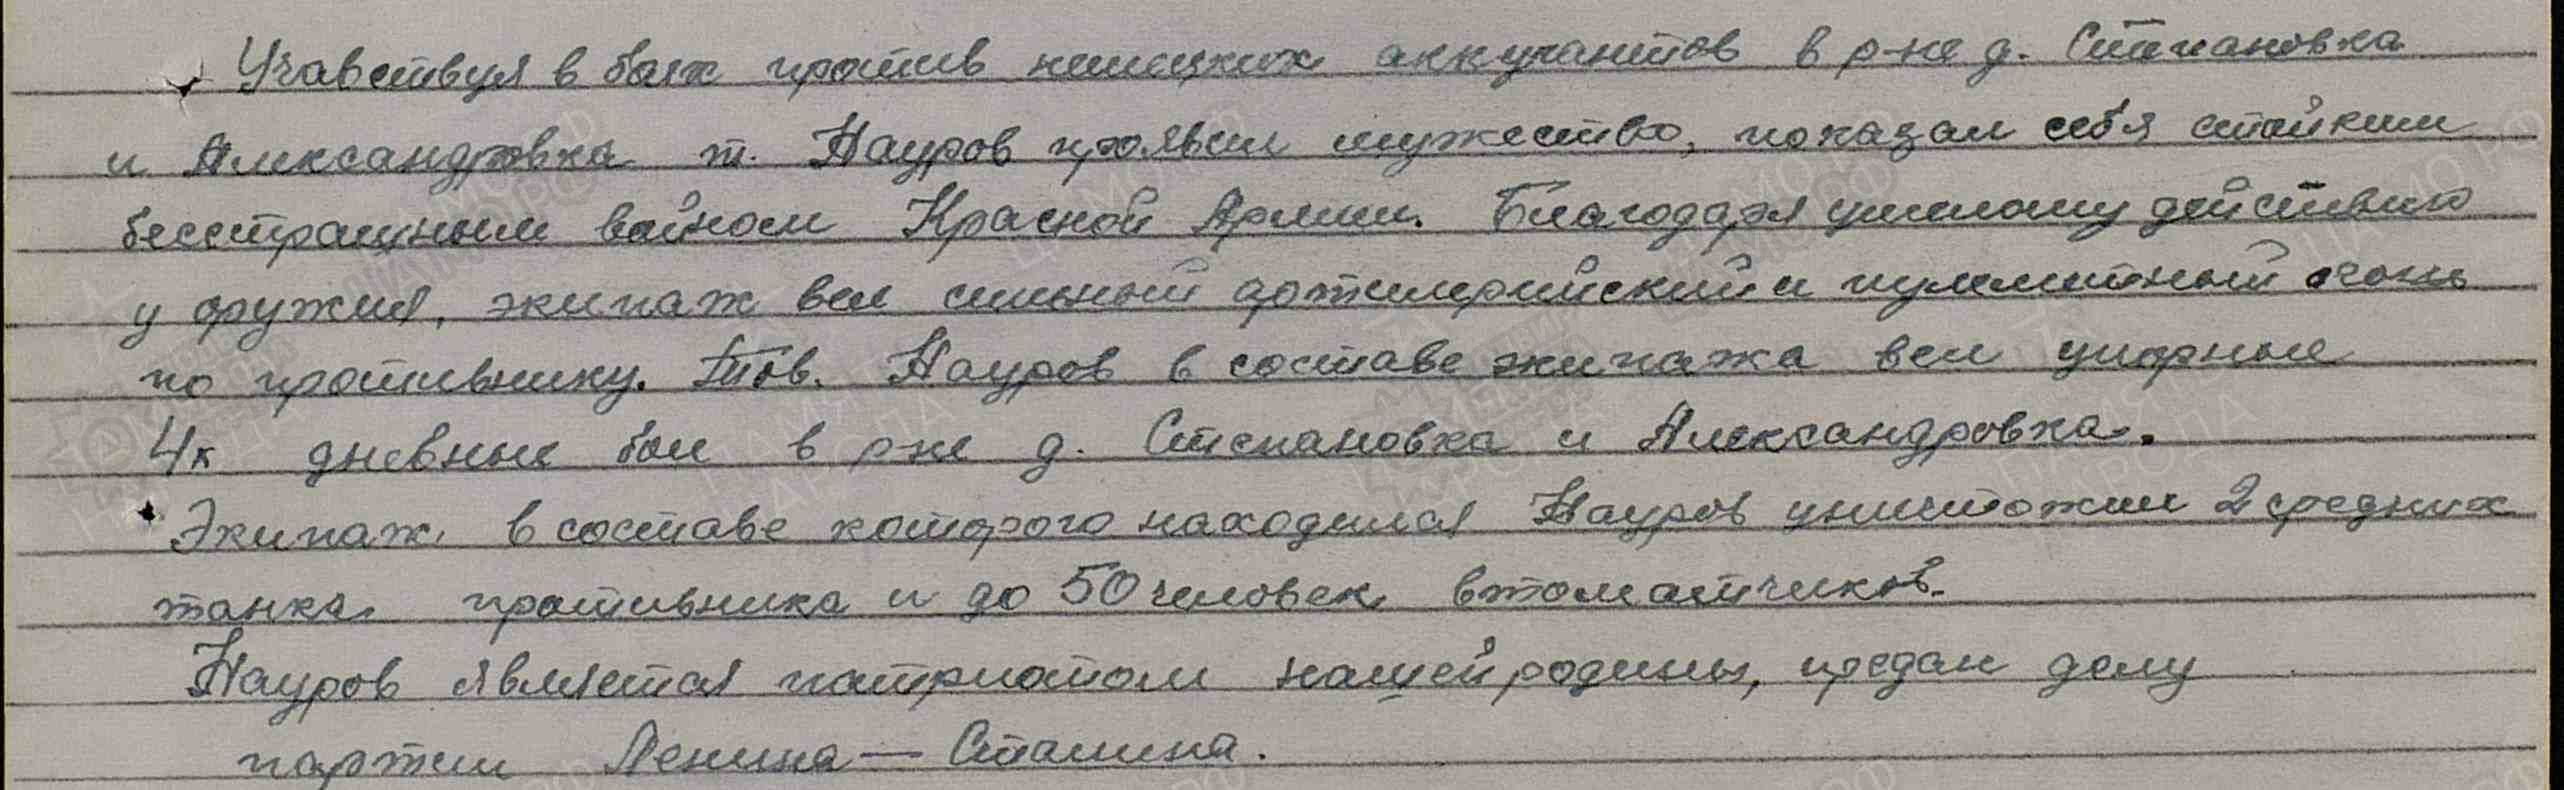 Учавствуя в боях против немецких аккупантов в р-не д. Степановка
и Александровка т. Науров проявил мужество, показал себя стойким
бесстрашным войном Красной Армии. Благодаря умелому действию
у оружия, экипаж вел сильный артилерийский и пулеметный огонь
по противнику. Тов. Науров в составе экипажа вел упорные
4х дневные бои в р-не д. Степановка и Александровка.
Экипаж в составе которого находился Науров уничтожил 2 средних
танка противника и до 50 человек втоматчиков.
Науров является патриотом нашей родины, предан делу
партии Ленина — Сталина.